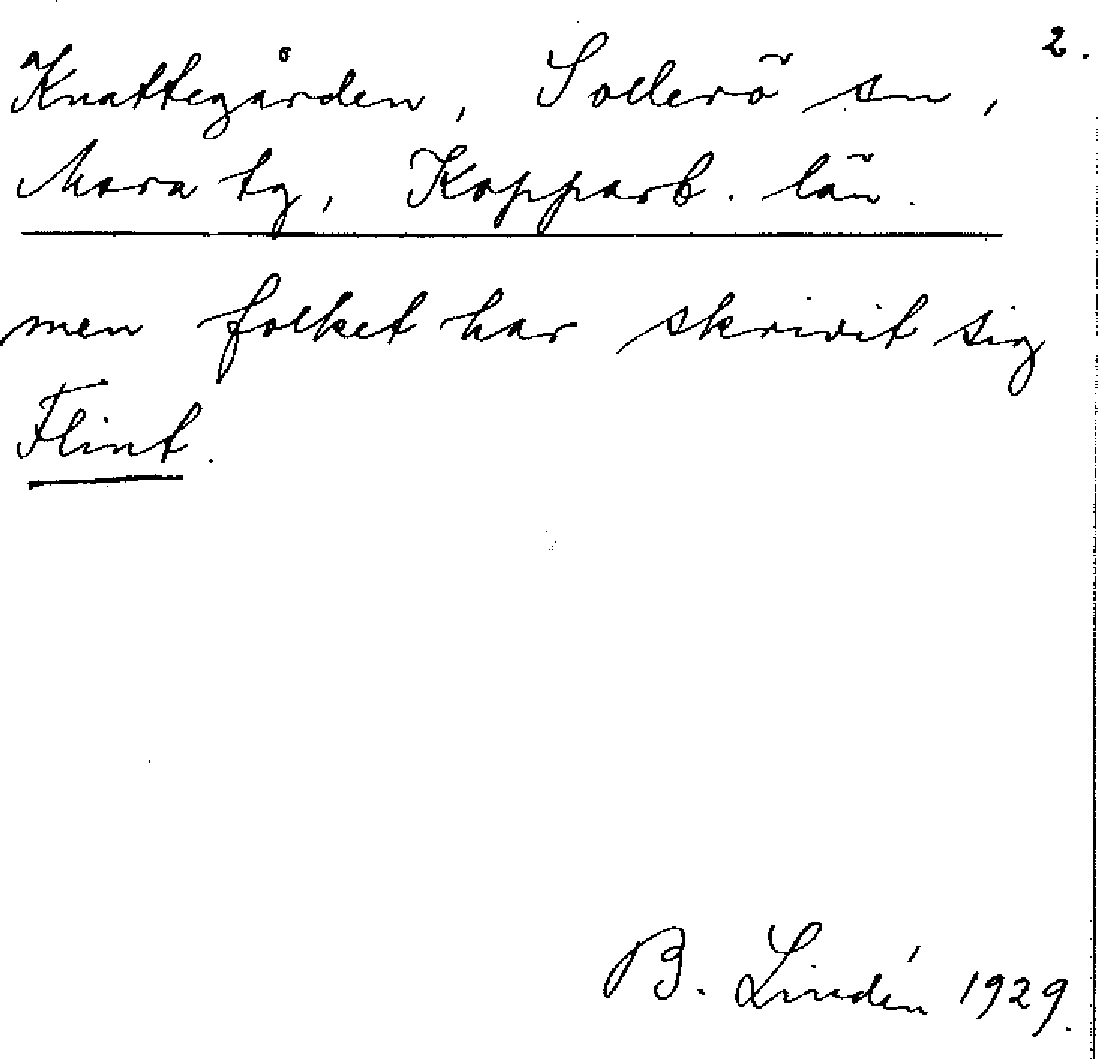 2.
Knattegården, Sollerö sn,
Mora tg, Kopparb. län.
men folket har skrivit sig
Flint.
B. Lindén 1929.